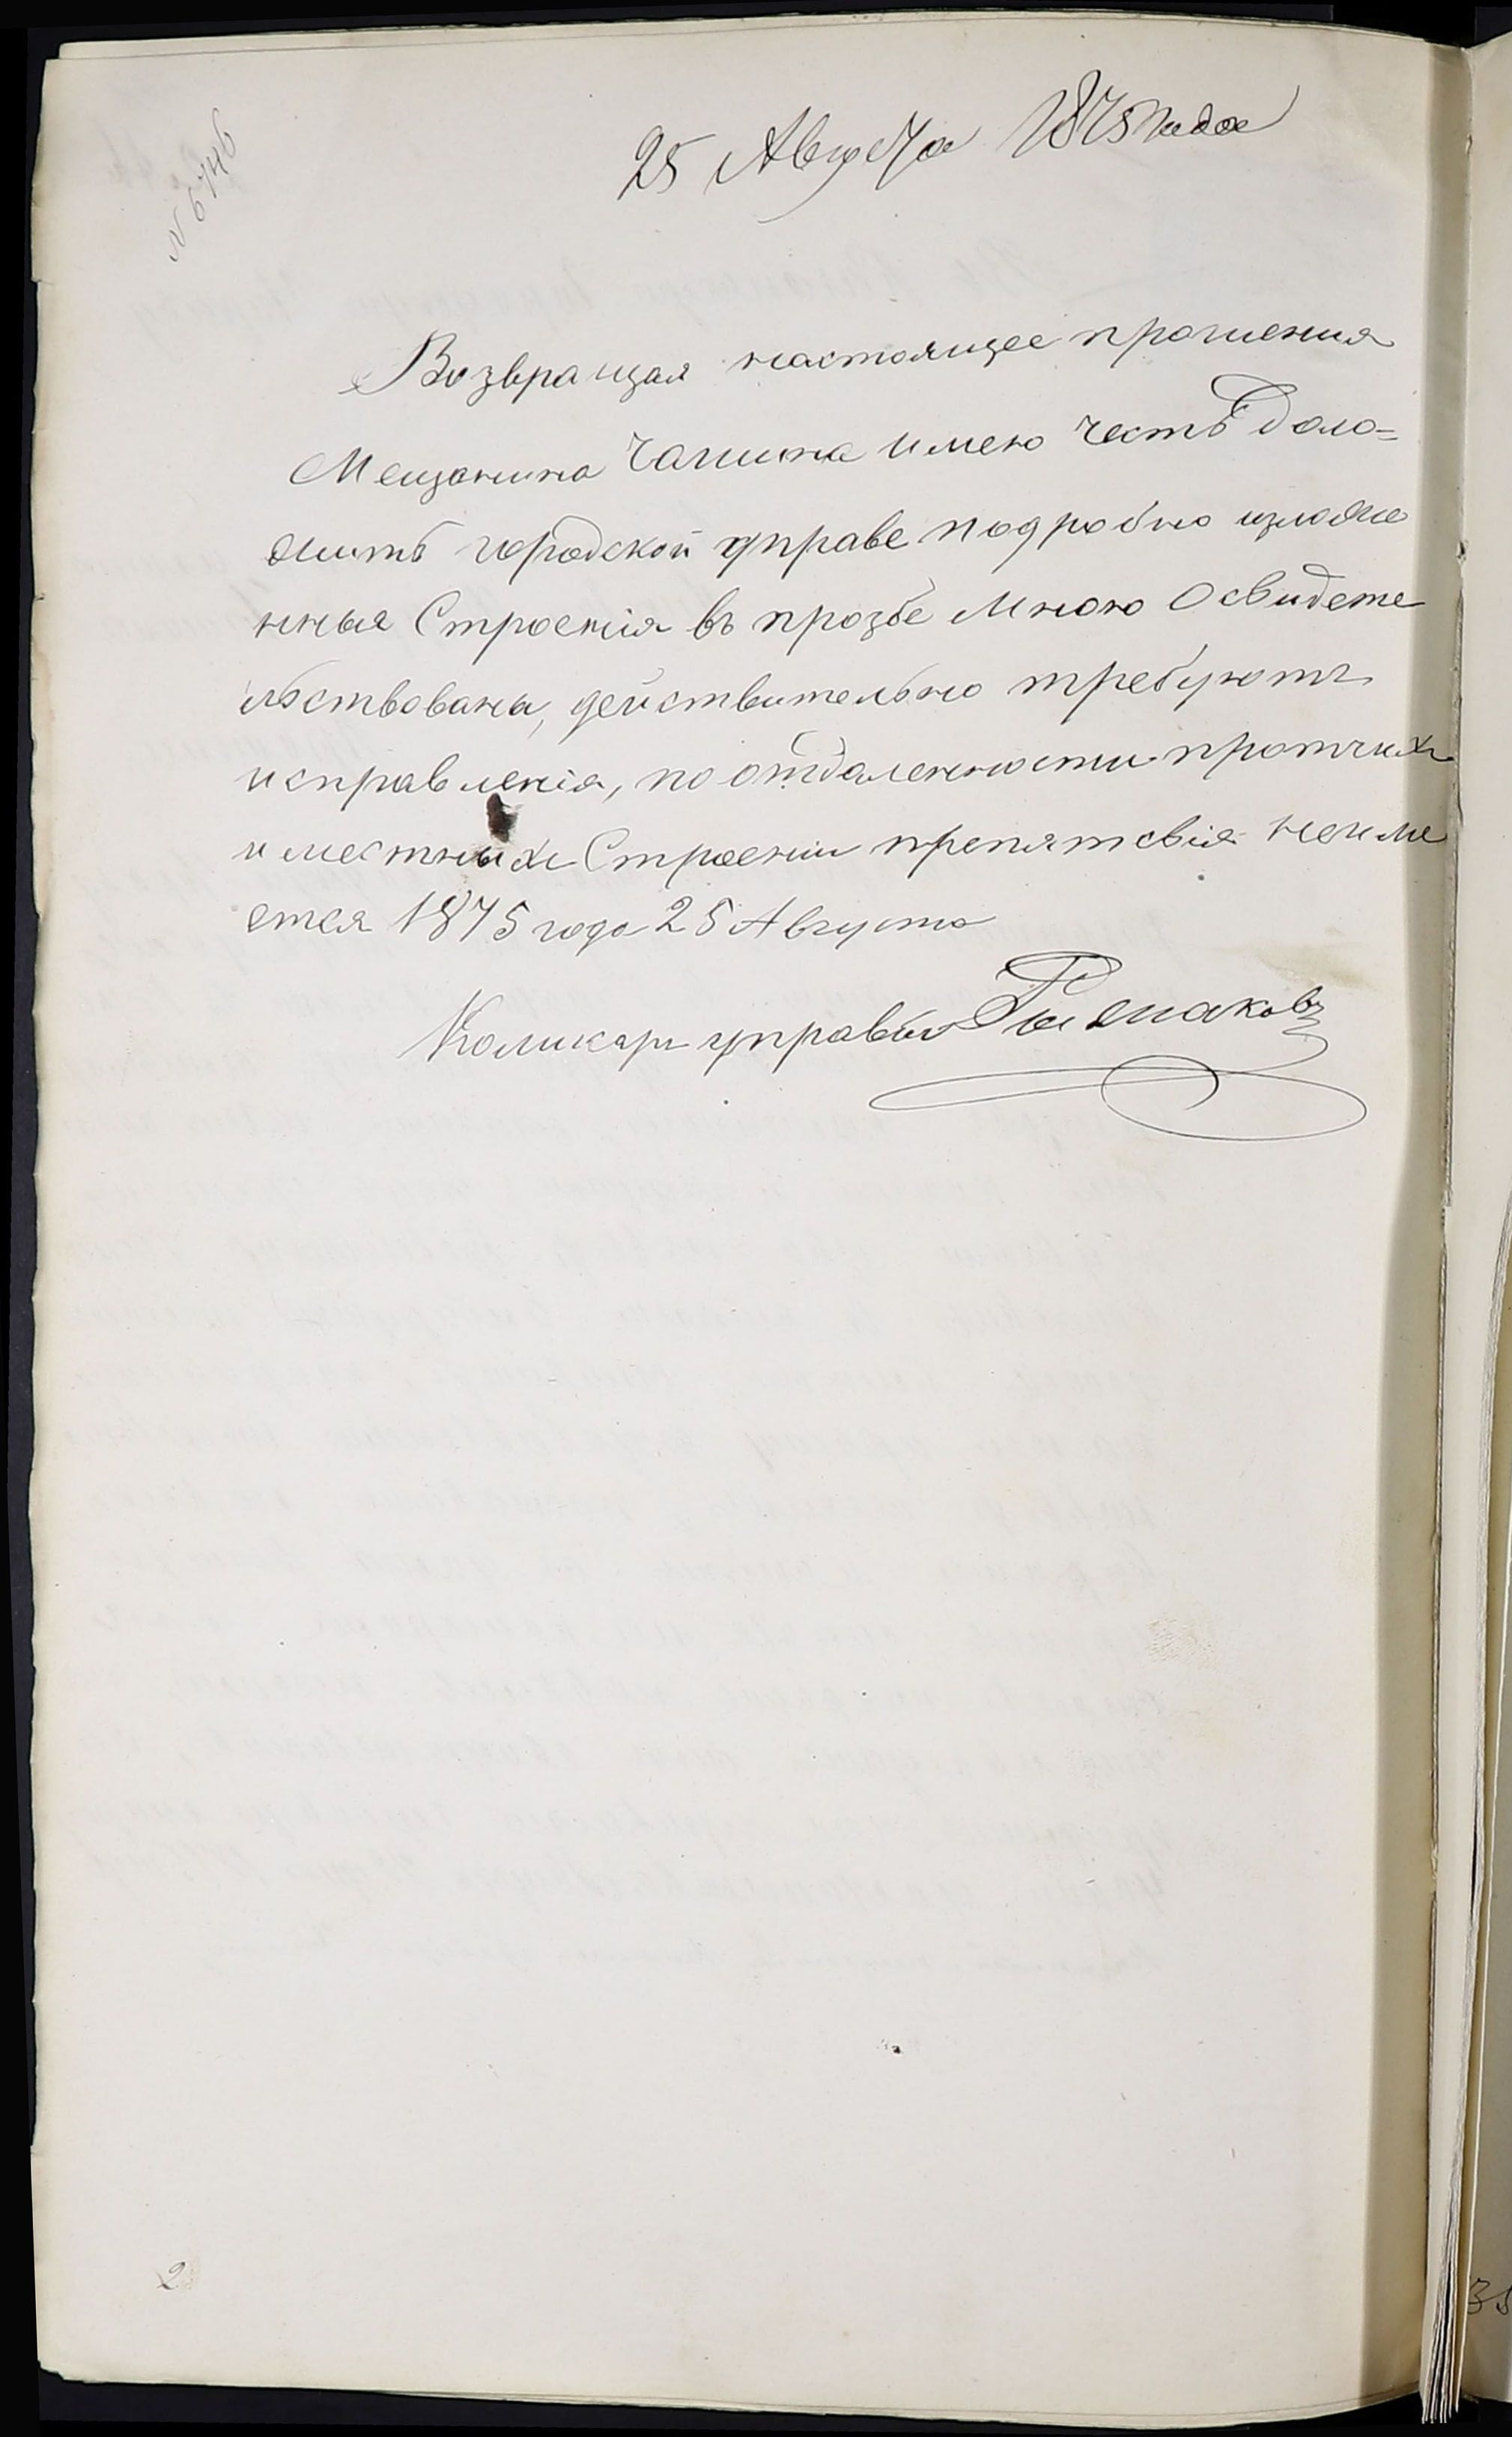 N 6746
25 Августа 1875 года
Возвращая настоящее прошения
Мещанина Чашина имею честь доло=
жить городской управе подробно изложе
нныя Строенія въ прозбе Мною Освидете
льствованы, действительно требуютъ
исправленія, по отдаленности протчихъ
и местныхъ Строении препятсвія неиме
ется 1875 года 25 Августа
Комисаръ управы
2
35